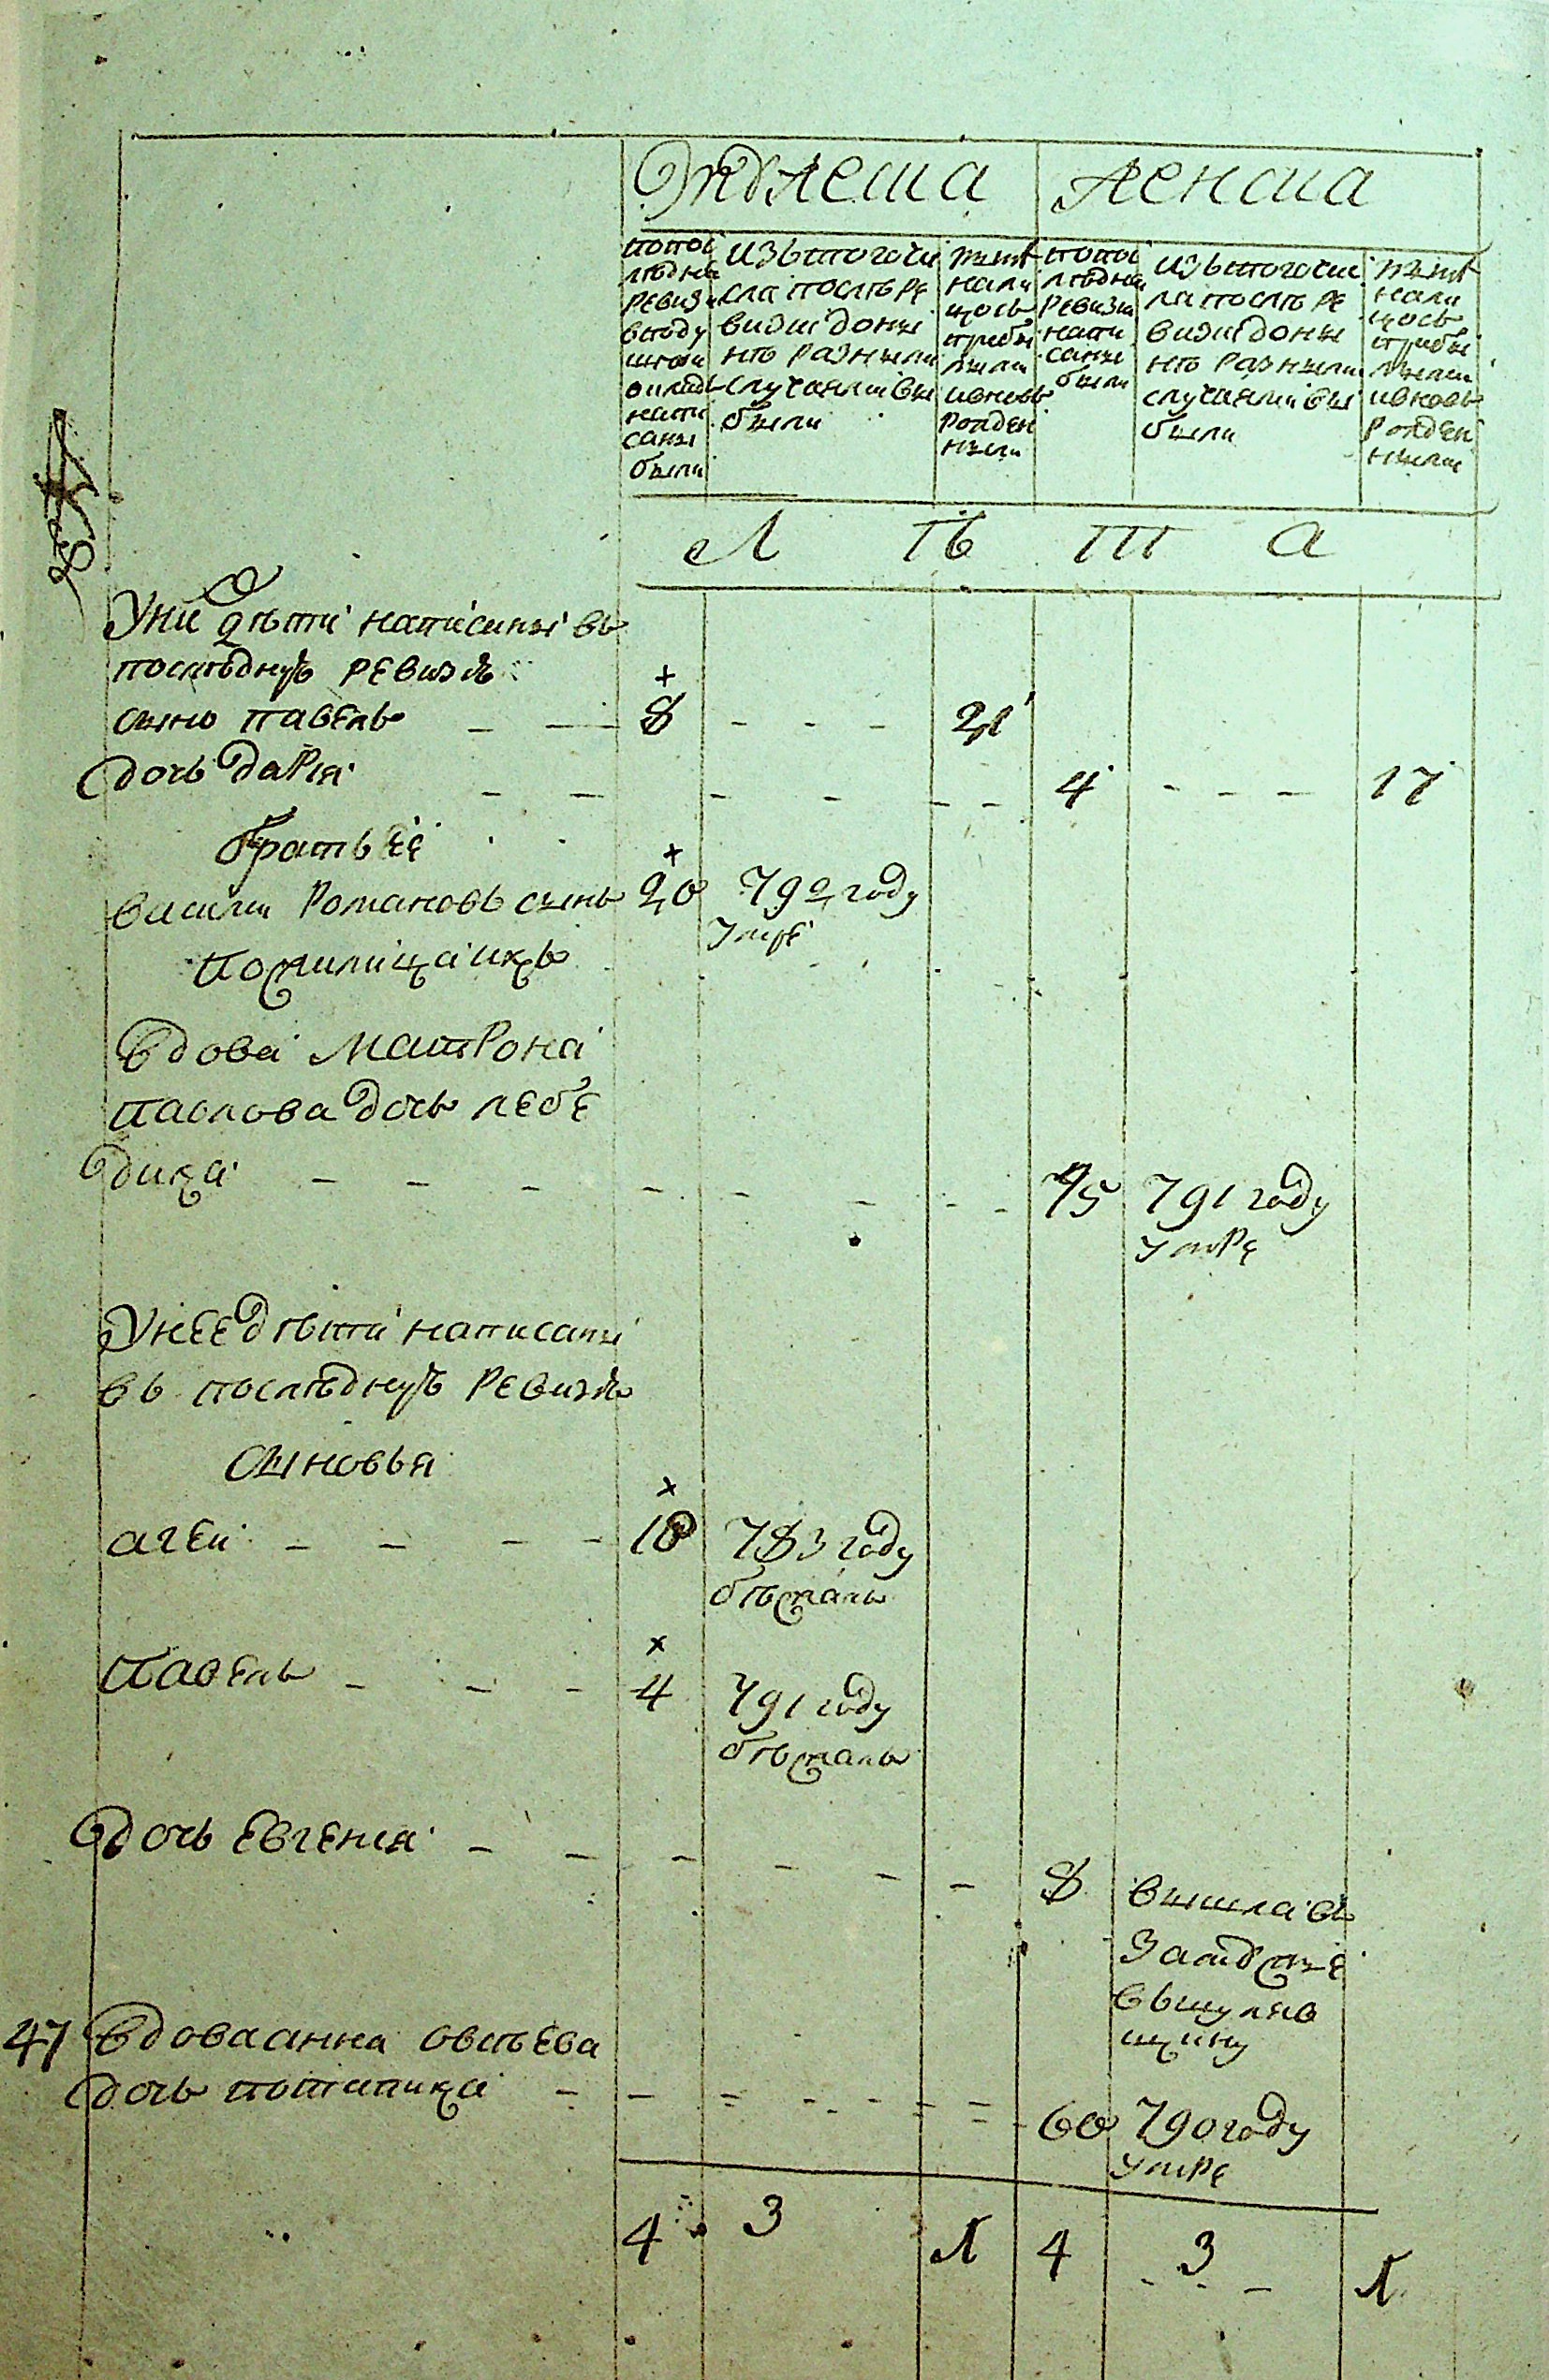 Мужеска
Женска
попос
ледней
ревизи
вподу
шном
окладѣ
напи
саны
были
изътогочи
сла послѣ ре
визіи доны
нѣ разными
случаями вы
были
нынѣ
нали
цосъ
прибы
лыми
ивновь
рожден
ными
попос
ледней
ревизи
напи
саны
были
изътогочис
ла послѣ ре
визіи доны
нѣ разными
случаями вы
были
нынѣ
нали
цосъ
прибы
лыми
ивновь
рожден
ными
Л Ѣ Т А
У ней дѣти написаны въ
послѣдную ревизію
сынъ павелъ 8 21
дочь дарія 4 17
братъ ее
василии Романовъ сынъ 20 792 году
умре
Вдова Матрона
павлова дочь лебе
дика 45 791 году
умре
Унеедѣти написаны
въ послѣдную ревизію
сыновья
агеи 10 783 году
бѣжалъ
павелъ 4 791 году
бѣжалъ
дочь евгения 8 вышла въ
замуже
въшуляв
щину
47 вдова анна овсѣева
дочь потапика 60 790 году
умре
4 3 1 4 3 1